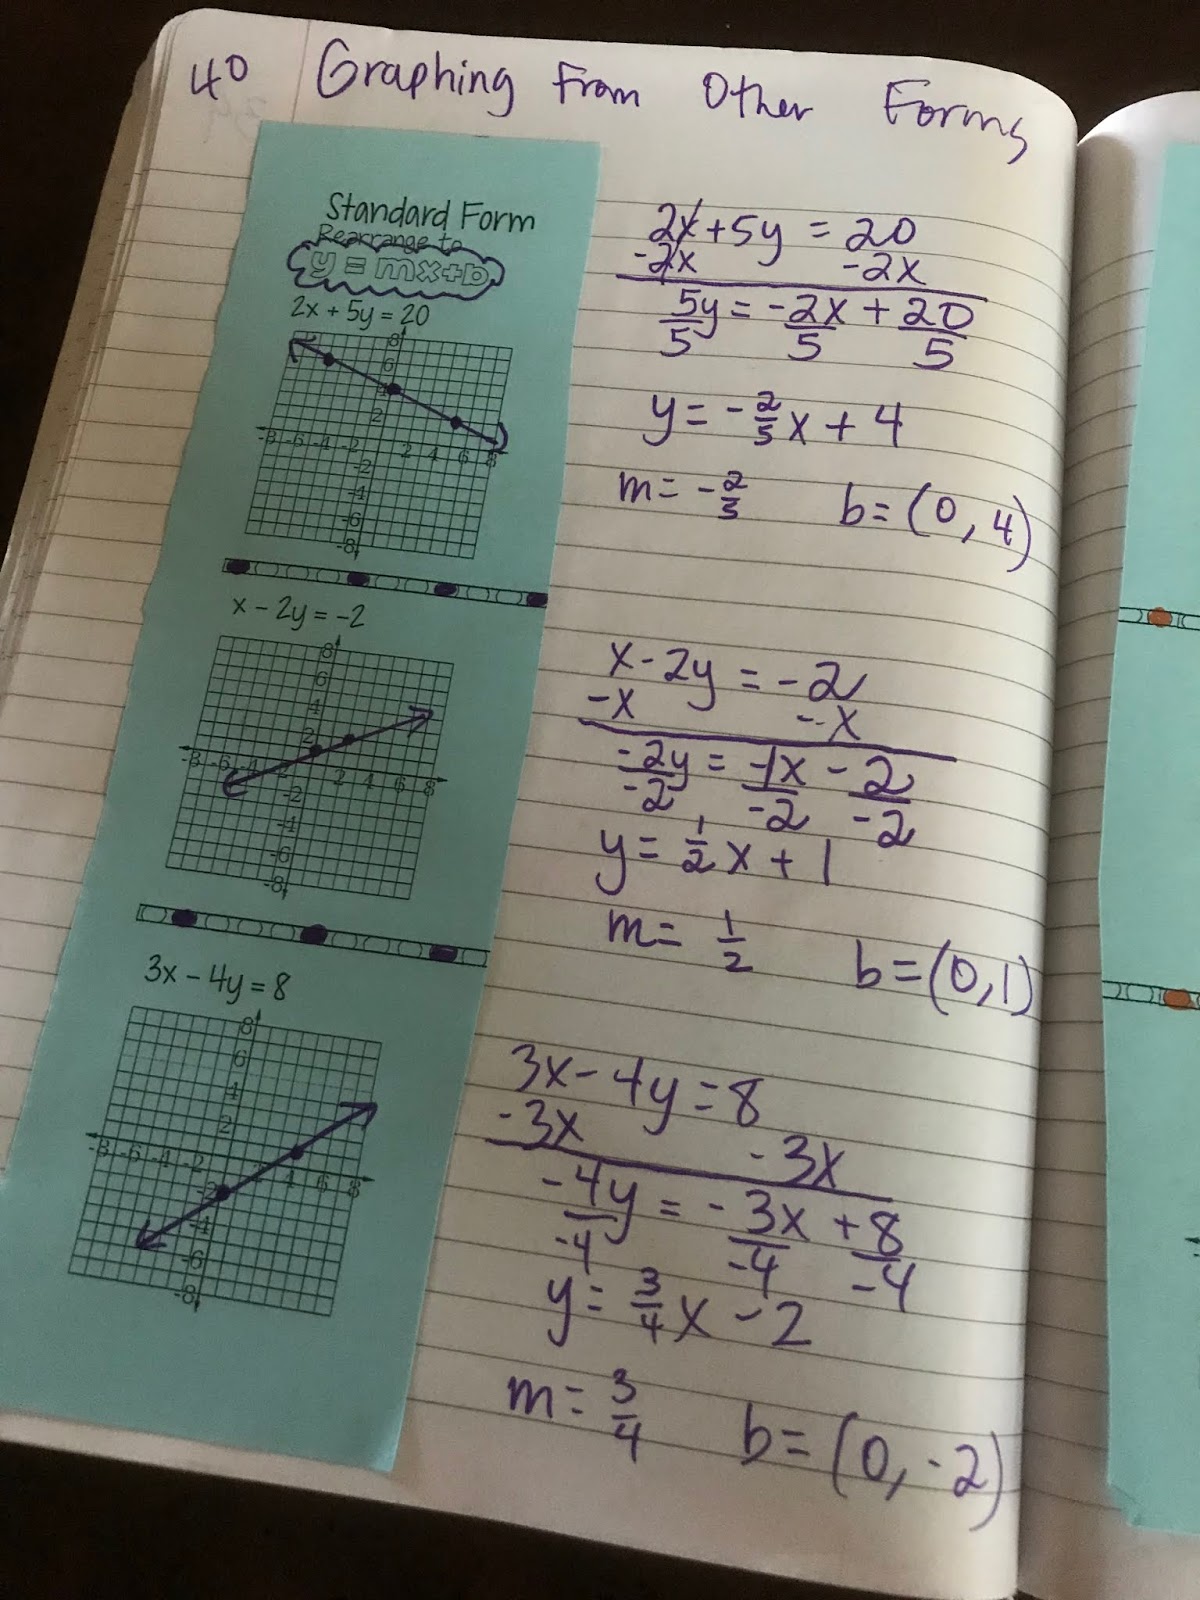 40 Graphing From Other Forms
Standard Form
Rearrange to
y = mx+b
2x + 5y = 20
8
6
4
2
-8 -6 -4 -2 2 4 6 8
-2
-4
-6
-8
2x+5y = 20
-2x -2x
5y = -2x + 20
5 5 5
y = -2/5x + 4
m = -2/5 b = (0, 4)
x - 2y = -2
8
6
4
2
-8 -6 -2 2 4 6 8
-2
-4
-6
-8
x - 2y = -2
-x -x
-2y = -1x - 2
-2 -2 -2
y = 1/2 x + 1
m = 1/2 b = (0, 1)
3x - 4y = 8
8
6
4
2
-8 -6 -4 -2 4 6 8
-2
-4
-6
-8
3x - 4y = 8
-3x -3x
-4y = -3x + 8
-4 -4 -4
y = 3/4 x - 2
m = 3/4 b = (0, -2)